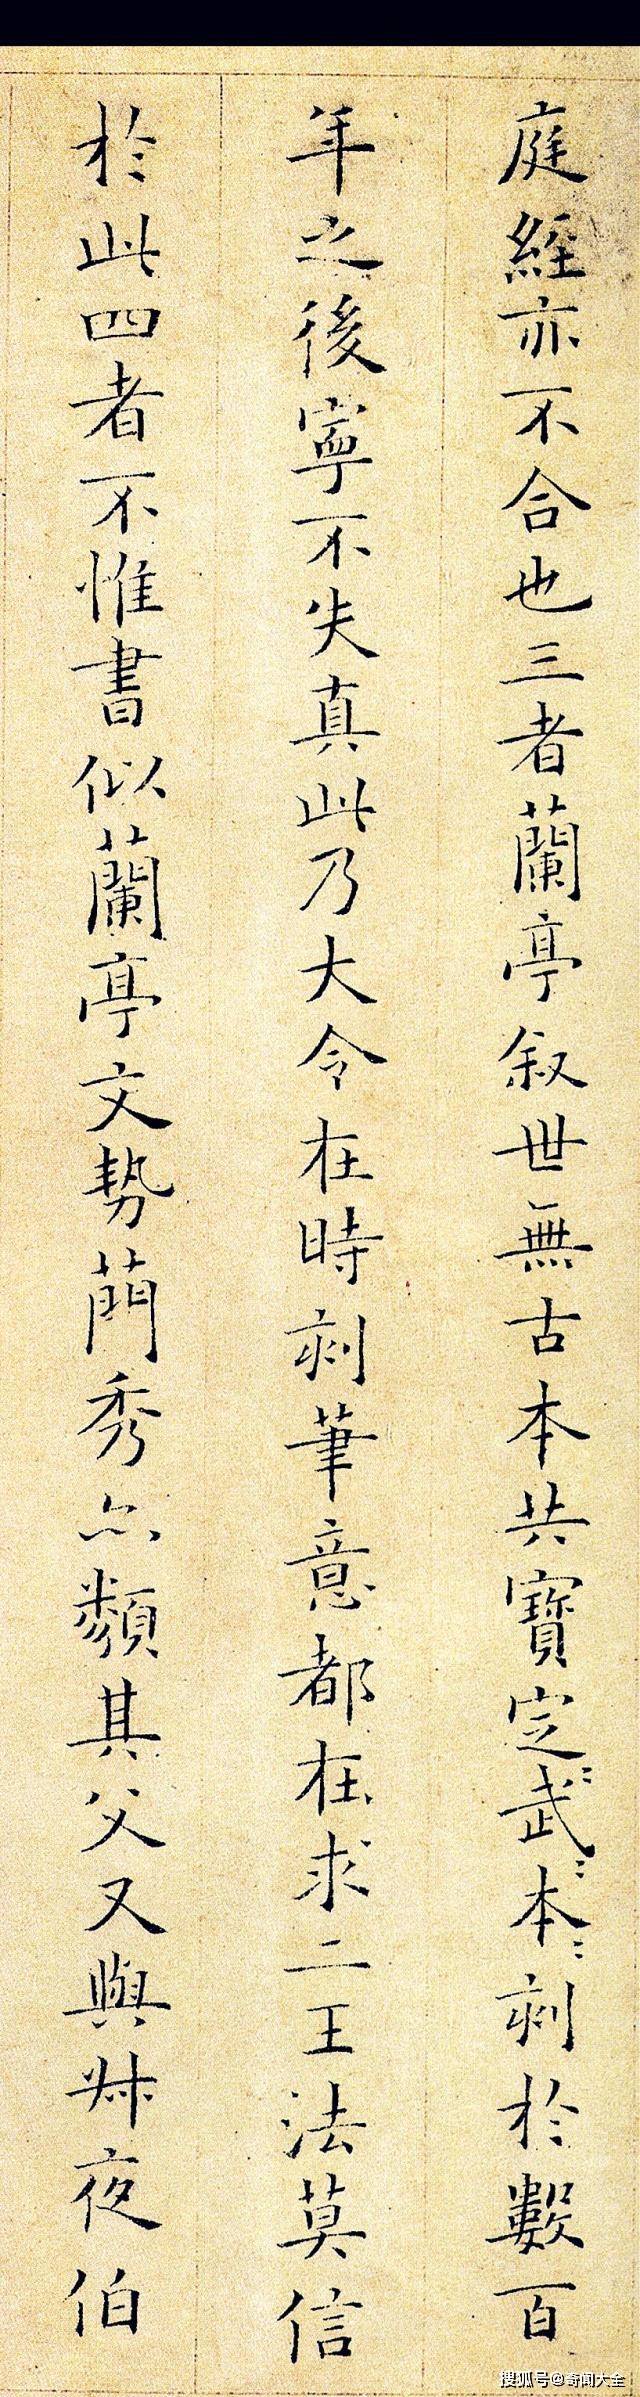 庭經亦不合也三者蘭亭叙世無古本共寶定〻武〻本〻刻於數百
年之後寧不失真此乃大令在時刻筆意都在求二王法莫信
於此四者不惟書似蘭亭文勢蕳秀亦類其父又與叔夜伯
搜狐号@奇闻大全